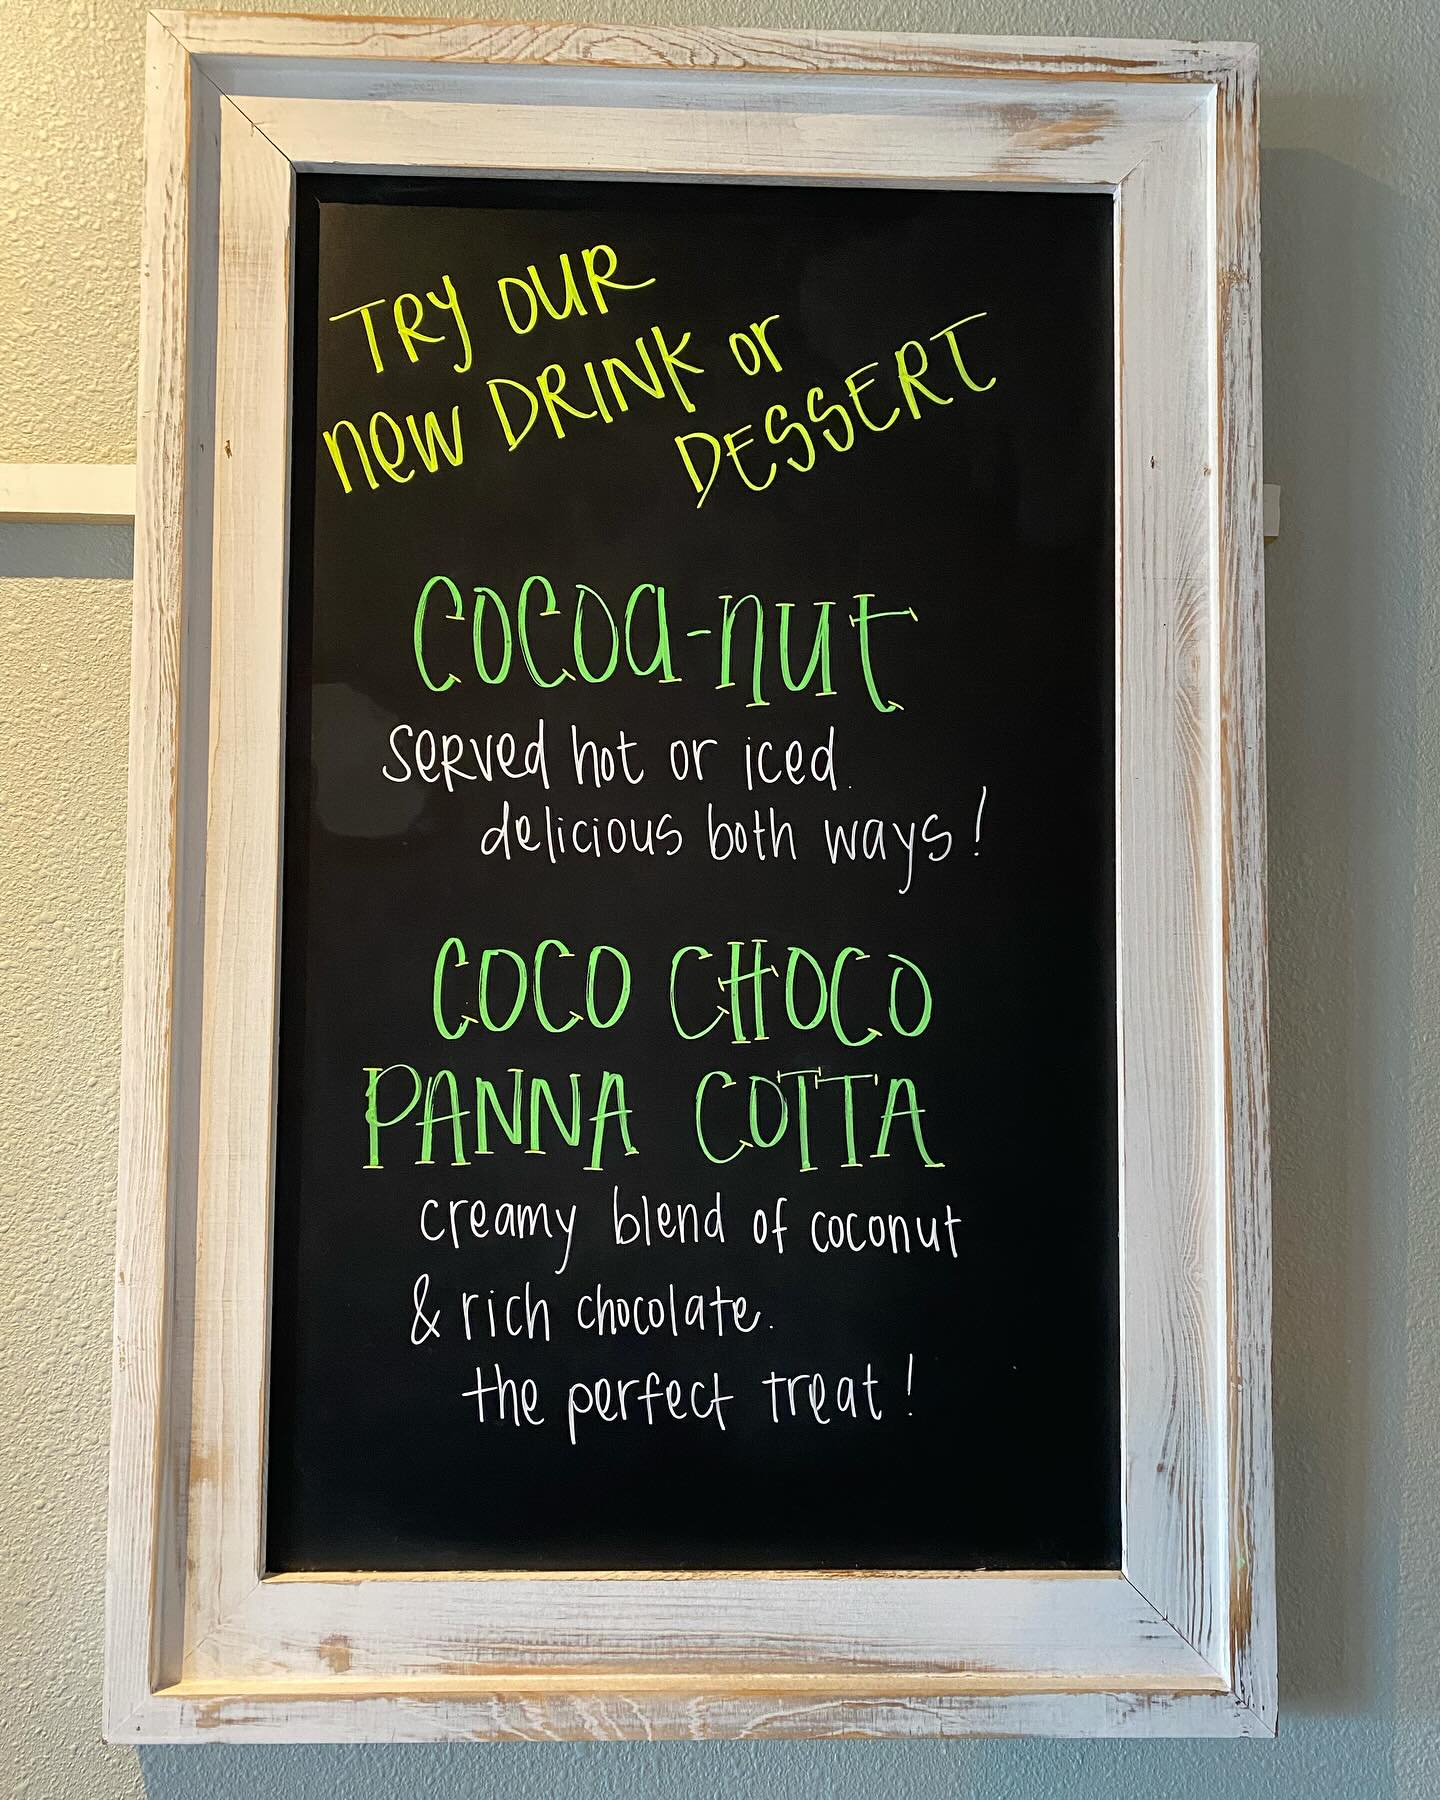 TRY OUR
new DRINK or
DESSERT
COCOa-nut
served hot or iced.
delicious both ways!
COCO CHOCO
PANNA COTTA
creamy blend of coconut
& rich chocolate.
the perfect treat!